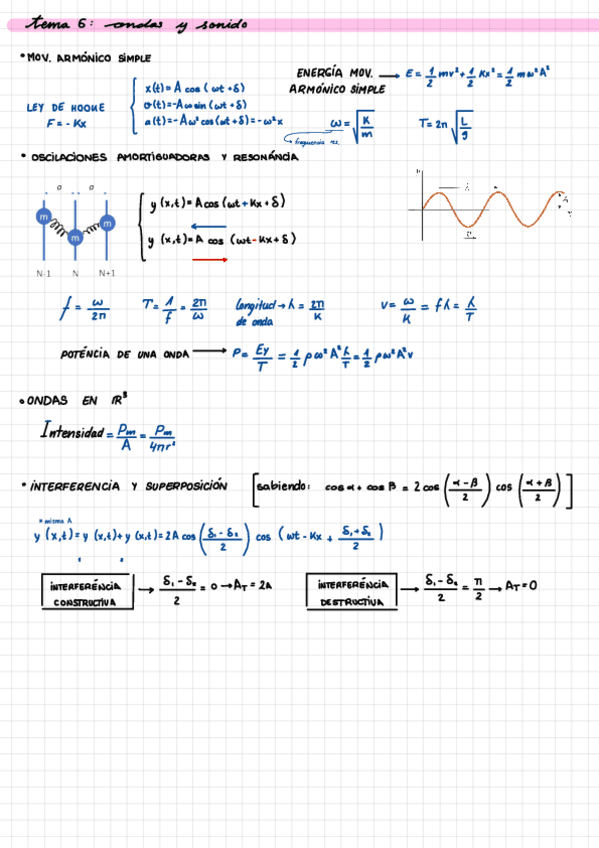 tema 6: ondas y sonido
• MOV. ARMÓNICO SIMPLE
LEY DE HOOKE
F = - Kx
x(t) = A cos (ωt + δ)
v(t) = -Aω sin (ωt + δ)
a(t) = -Aω² cos (ωt + δ) = -ω²x
ENERGÍA MOV. ARMÓNICO SIMPLE → E = 1/2 mv² + 1/2 Kx² = 1/2 mω²A²
ω = √(K/m)
frecuencia
T = 2π √(L/g)
• OSCILACIONES AMORTIGUADORAS Y RESONÁNCIA
a a
m m m
N-1 N N+1
y (x,t) = A cos (ωt + Kx + δ)
y (x,t) = A cos (ωt - Kx + δ)
f = ω/2π
T = 1/f = 2π/ω
longitud de onda → λ = 2π/K
v = ω/K = fλ = λ/T
POTÉNCIA DE UNA ONDA → P = Ey/T = 1/2 ρω²A² λ/T = 1/2 ρω²A²v
• ONDAS EN ℝ³
Intensidad = Pm/A = Pm/4πr²
• INTERFERENCIA Y SUPERPOSICIÓN
[sabiendo: cos α + cos β = 2 cos ((α - β)/2) cos ((α + β)/2)]
* misma A
y (x,t) = y₁ (x,t) + y₂ (x,t) = 2A cos ((δ₁ - δ₂)/2) cos (ωt - Kx + (δ₁ + δ₂)/2)
INTERFERÉNCIA CONSTRUCTIVA → (δ₁ - δ₂)/2 = 0 → AT = 2A
INTERFERÉNCIA DESTRUCTIVA → (δ₁ - δ₂)/2 = π/2 → AT = 0